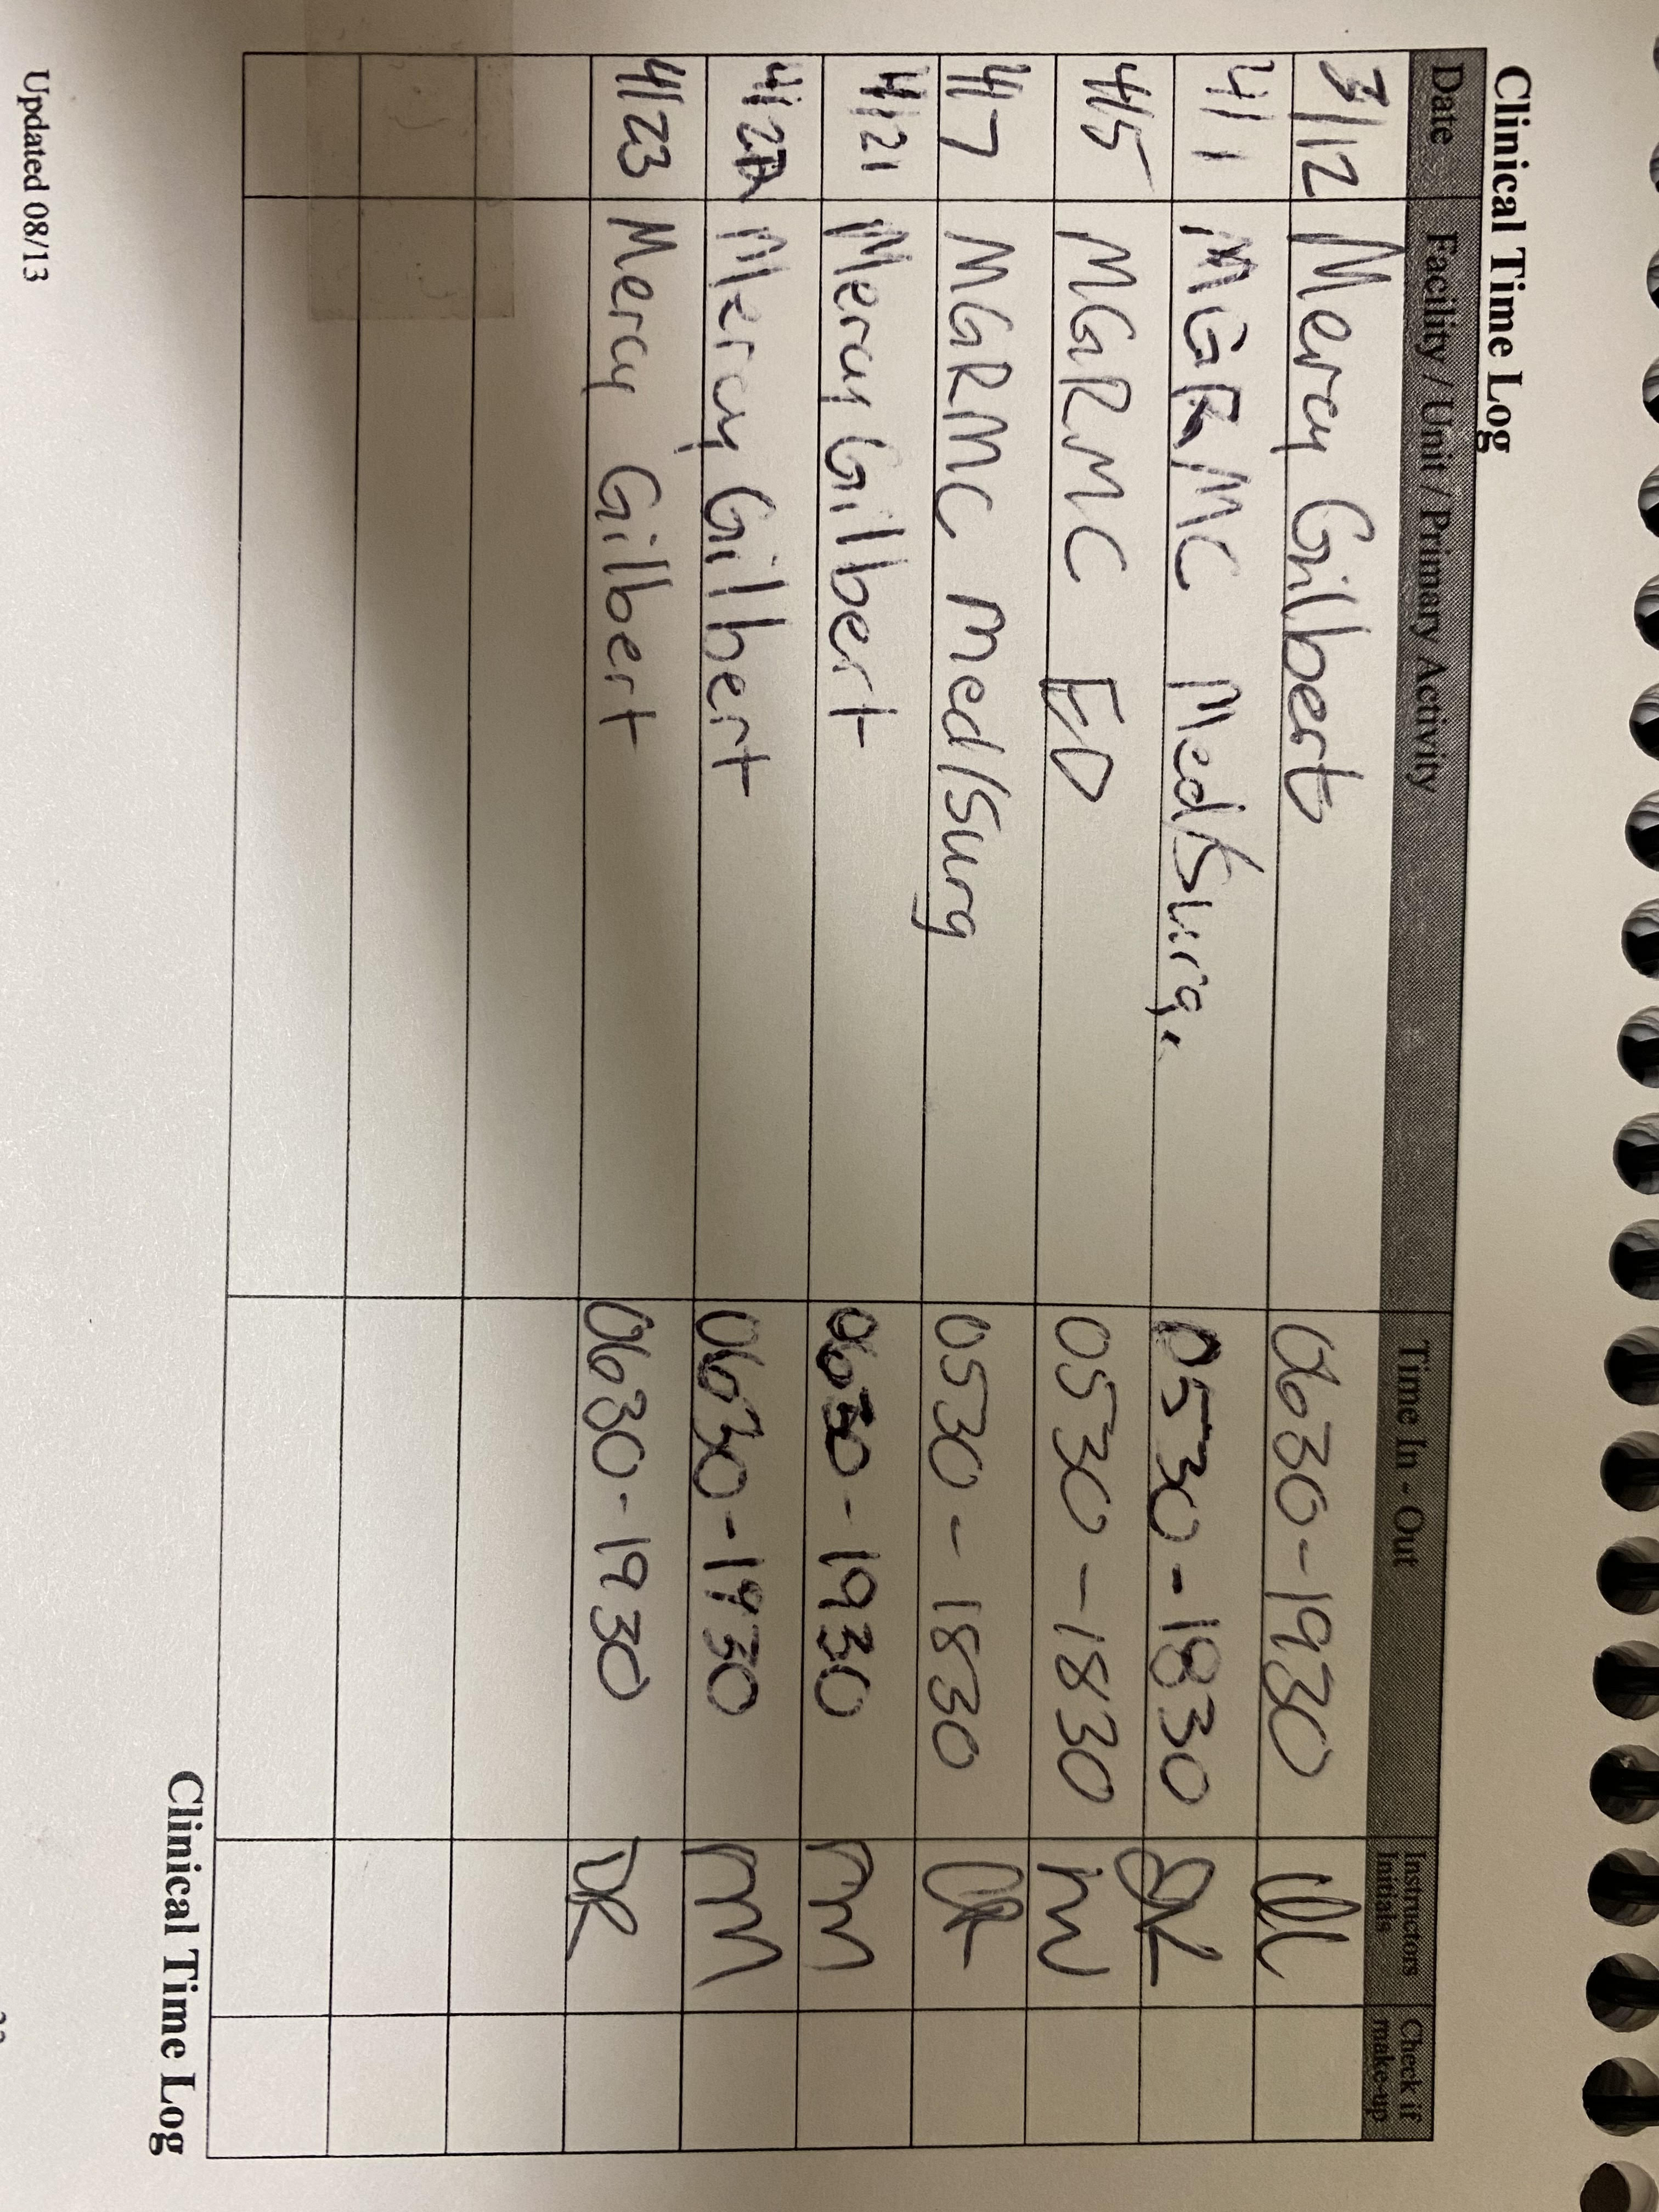 Clinical Time Log
Date Facility / Unit / Primary Activity Time In - Out Instructors Initials Check if make-up
3/12 Mercy Gilbert 0630-1930
4/1 MGRMC Med/Surg. 0530-1830
4/5 MGRMC ED 0530-1830
4/7 MGRMC med/surg 0530-1830
4/21 Mercy Gilbert 0630-1930
Mercy Gilbert 0630-1930
4/23 Mercy Gilbert 0630-1930
Clinical Time Log
Updated 08/13